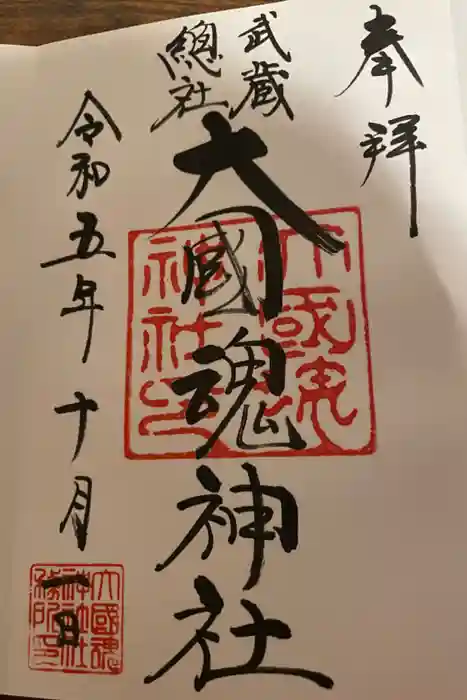 奉拝
武蔵
總社
大國魂神社
大國魂
神社印
令和五年十月一日
大國魂
神社社
務所印